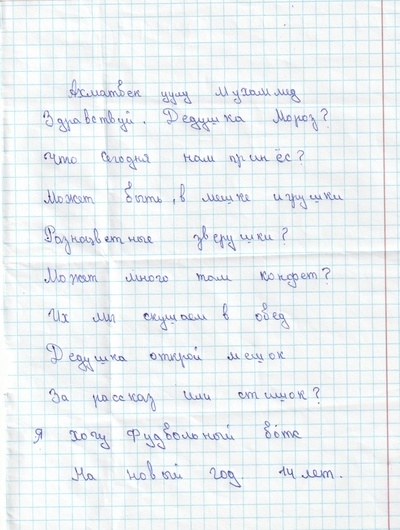 Ахматбек уулу Мухаммед
Здравствуй. Дедушка Мороз?
Что Сегодня нам принёс?
Может быть, в мешке игрушки
Разноцветные зверушки?
Может много там конфет?
Их мы скушаем в обед
Дедушка открой мешок
За рассказ или стишок?
Я Хочу Фудбольный ботс
На новый год 14 лет.